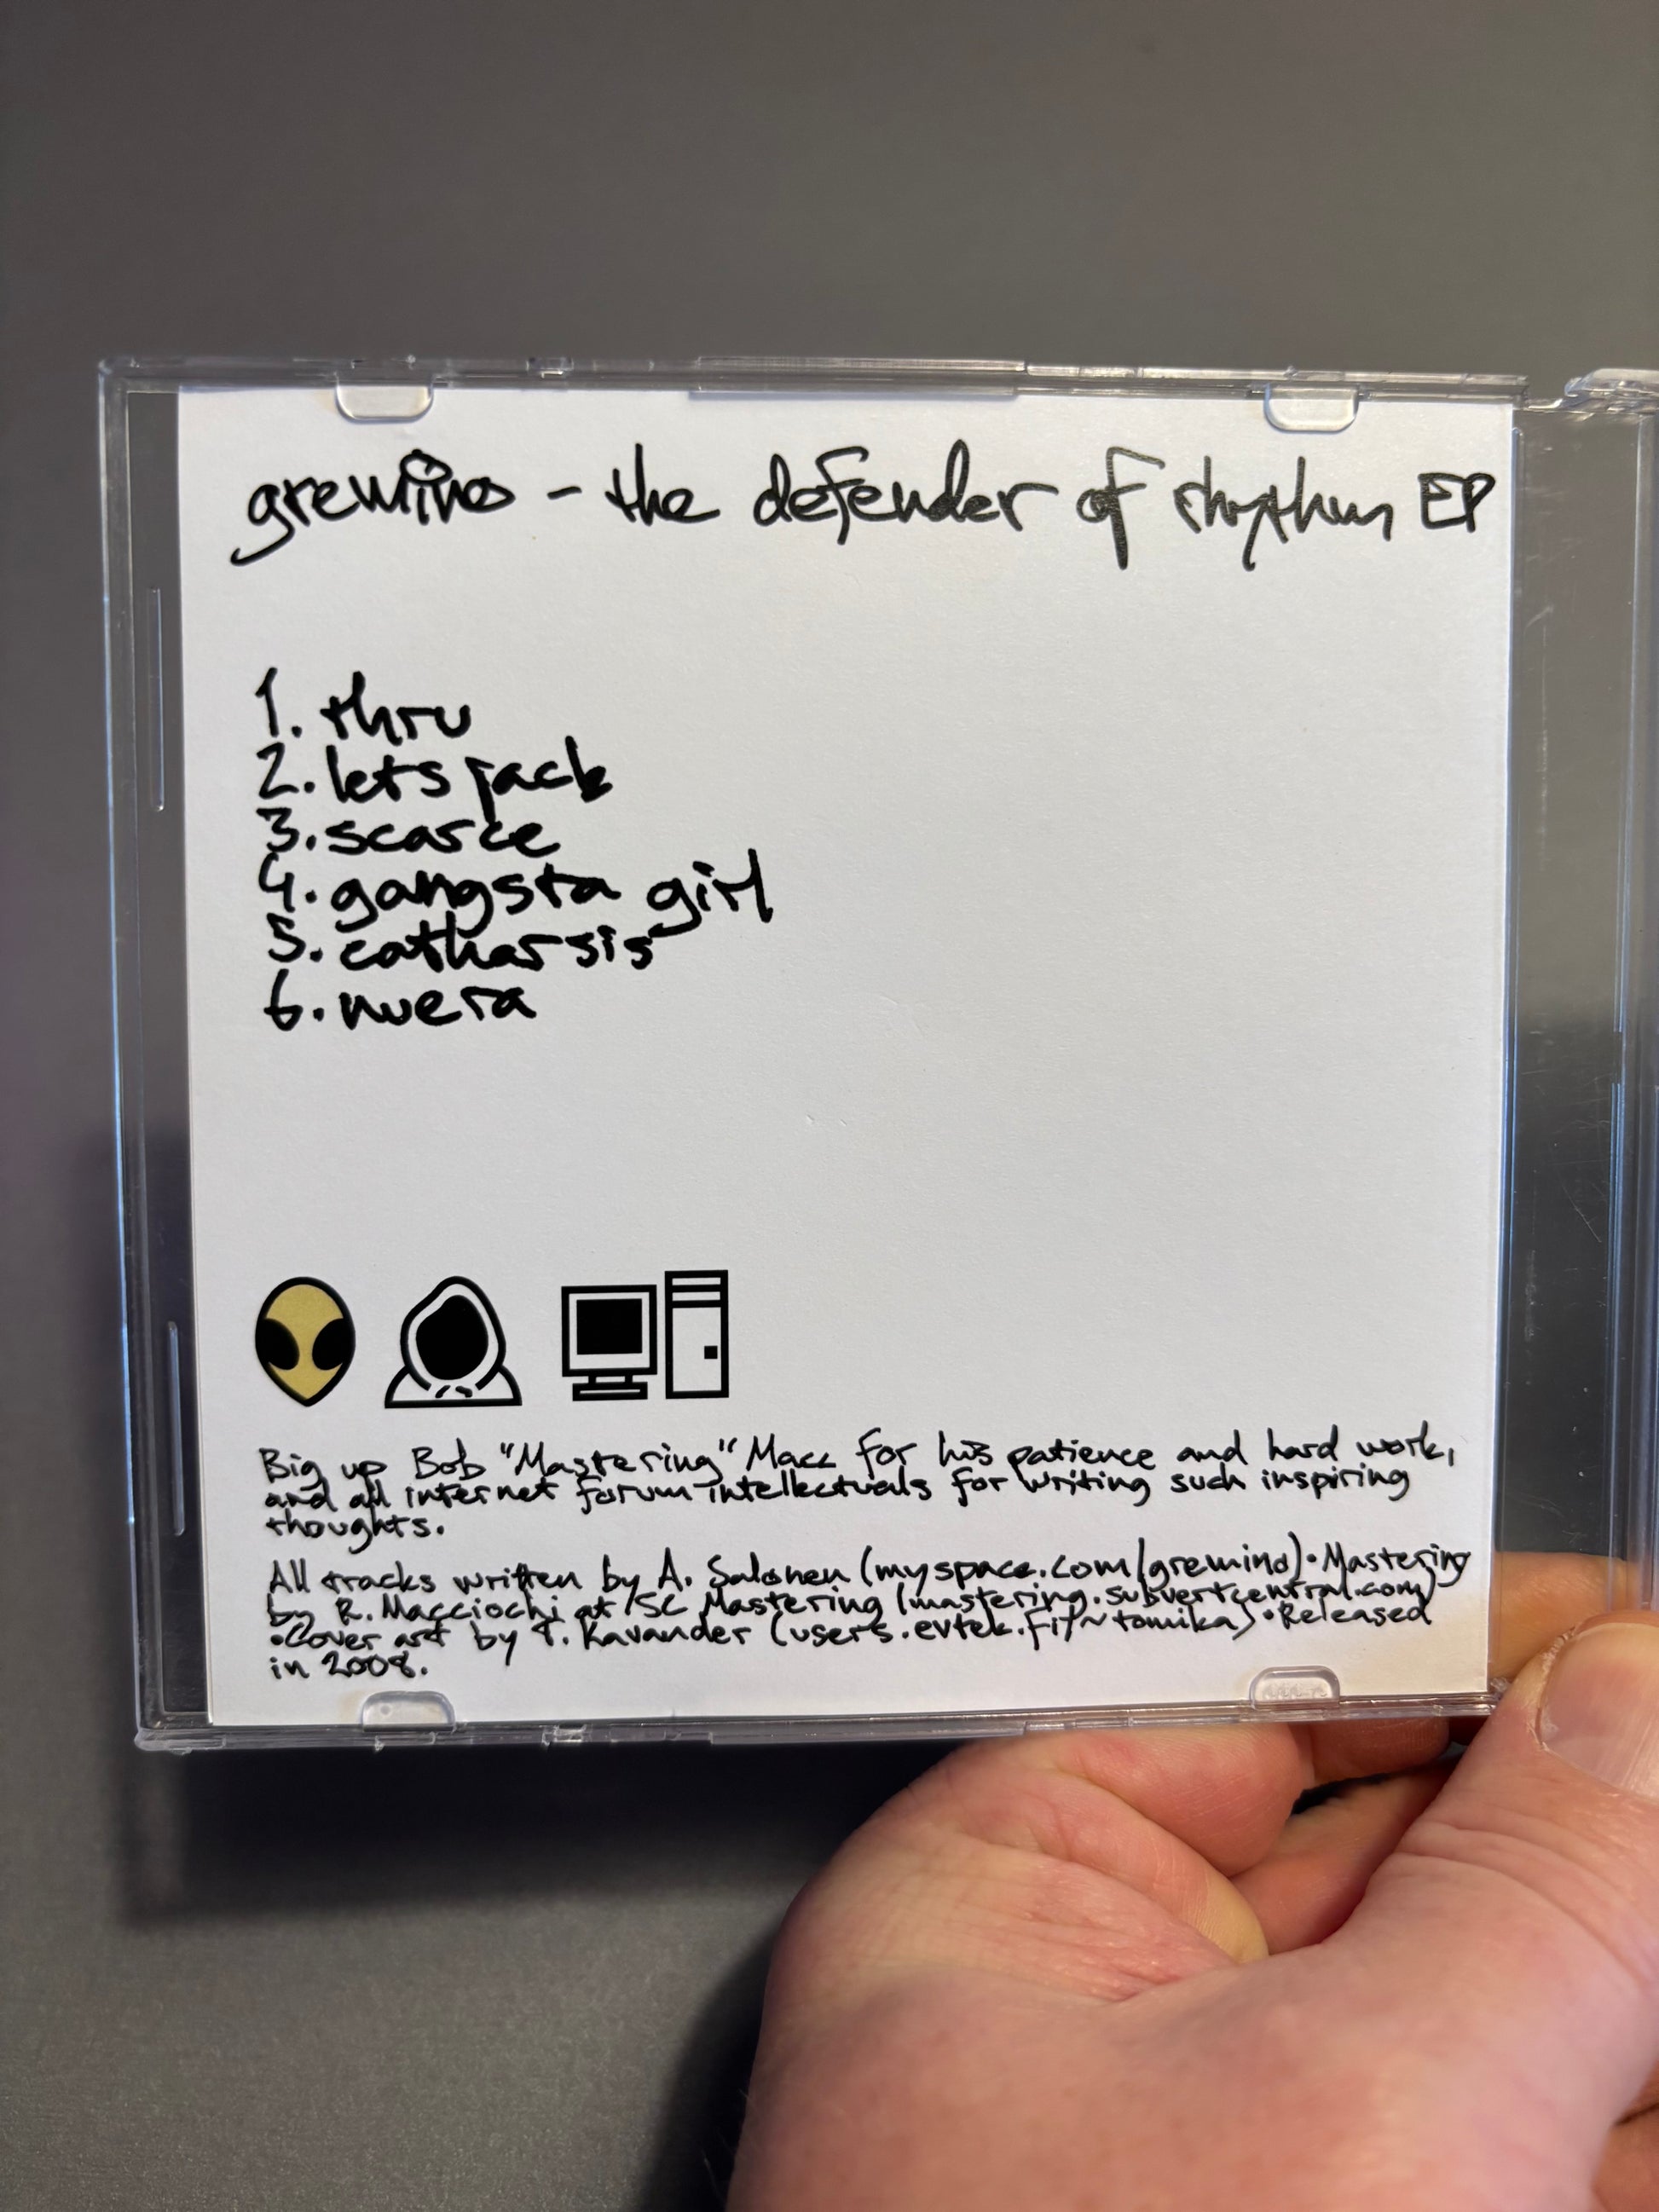 gremino - the defender of rhythm EP
1. thru
2. lets jack
3. scarce
4. gangsta girl
5. catharsis
6. nuera
Big up Bob "Mastering" Macc for his patience and hard work,
and all internet forum intellectuals for writing such inspiring
thoughts.
All tracks written by A. Salonen (myspace.com/gremino) • Mastering
by R. Macciochi at SC Mastering (mastering.subvertcentral.com)
• Cover art by T. Kavander (users.evtek.fi/~tomika) • Released
in 2008.